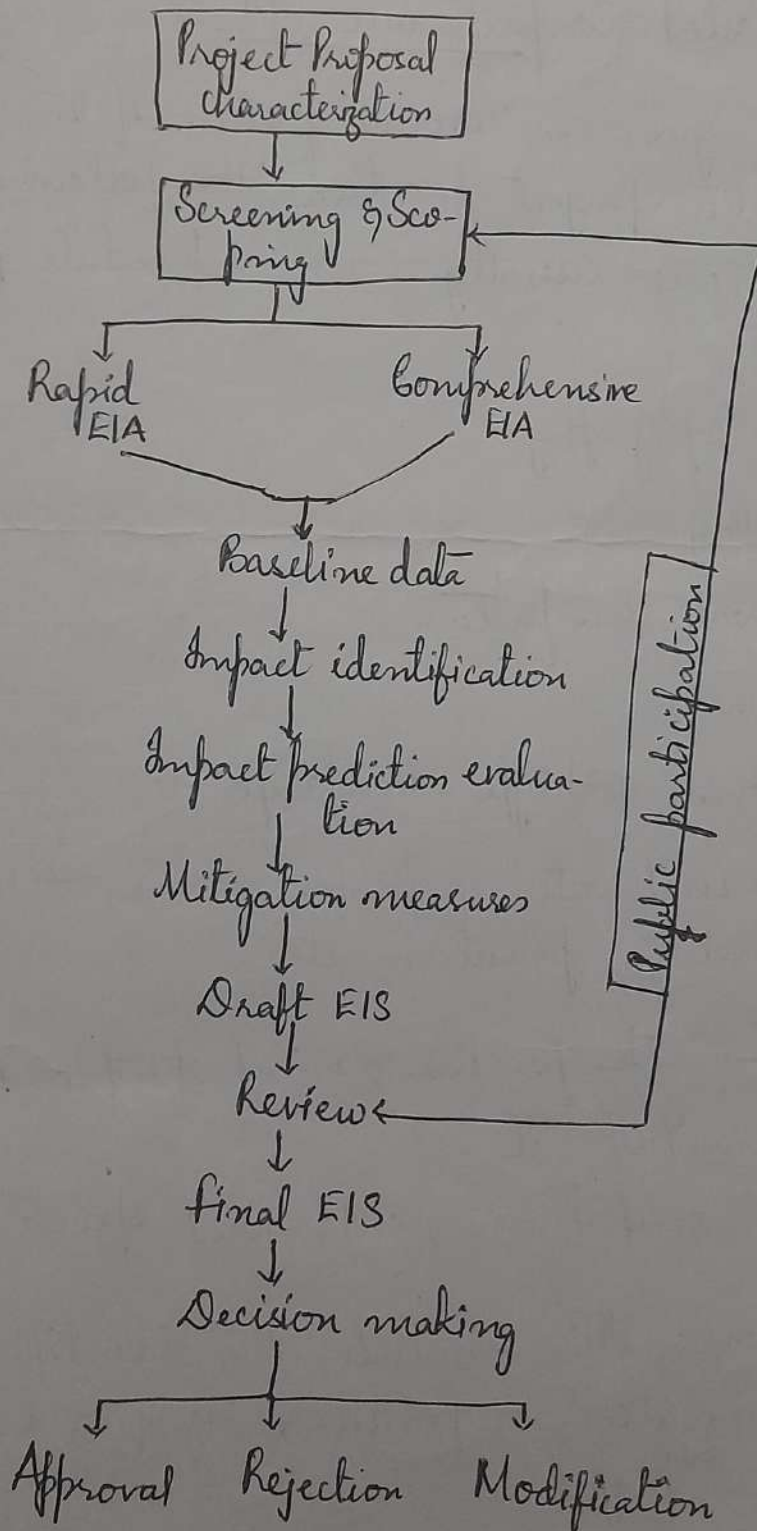 Project Proposal
characterization
Screening & Sco-
ping
Rapid
EIA
Comprehensive
EIA
Baseline data
Impact identification
Impact prediction evalua-
tion
Mitigation measures
Draft EIS
Review
final EIS
Decision making
Approval Rejection Modification
Public participation